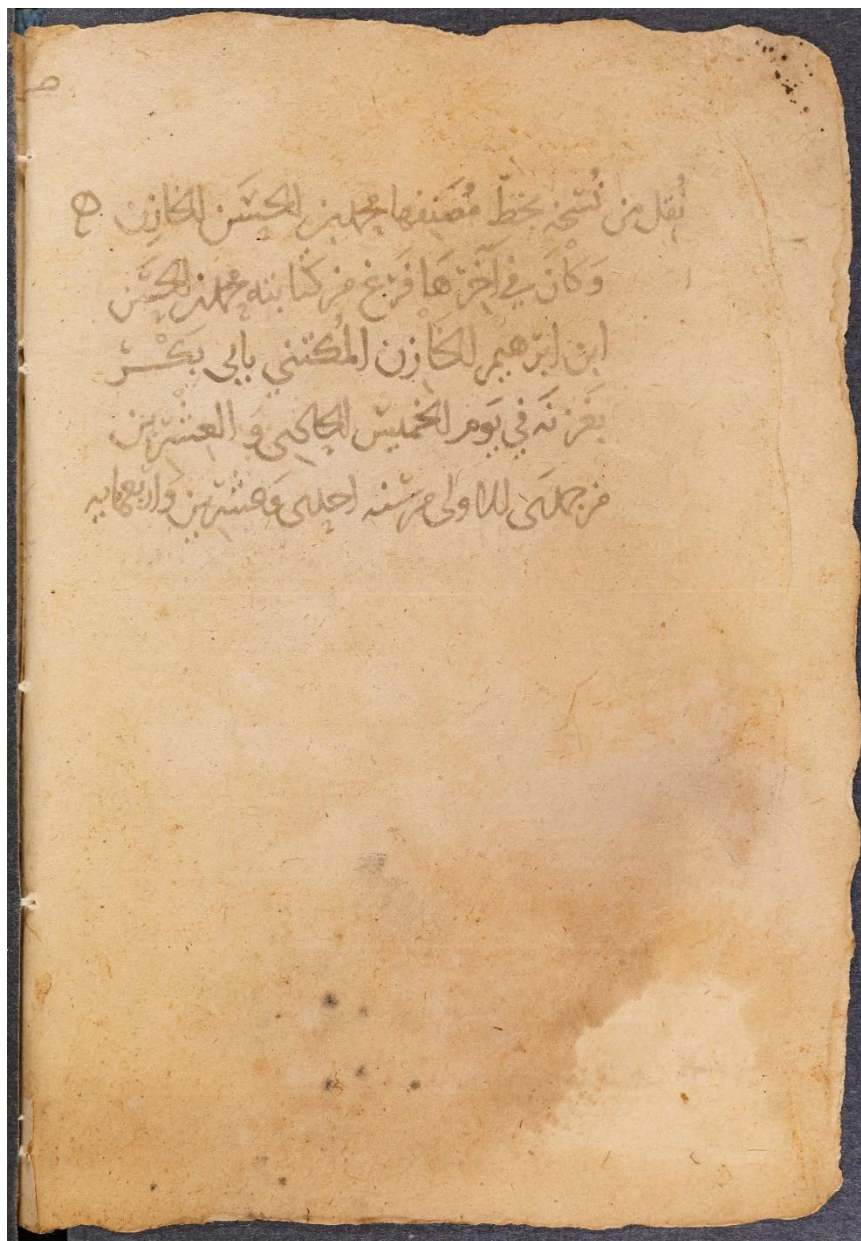 نُقل من نُسخة بخطّ مُصَنِفها محمد بن الحسَن الخازِن ه
وَكانَ في آخرهَا فَرغ من كتَابته محمد بن الحسَن
ابن ابرهيم الخَازن المُكتني بابي بَكْر
بغَزنَه في يَوم الخميس الحادي وَ العِشْرين
من جمادَى الاولى من سنه احدى وَعشرين وَاربعمايه